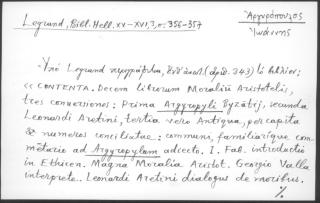 Legrand, Bibl. Hell. XV-XVI, 3, σ. 356-357
Ἀργυρόπουλος
Ἰωάννης
Ὑπὸ Legrand περιγράφεται, ἐνθ' ἀνωτ. (ἀριθ. 343) τὸ βιβλίον:
« CONTENTA. Decem librorum Moraliũ Aristotelis,
tres conversiones: Prima Argyropyli Byzãtij, secunda
Leonardi Aretini, tertia vero Antiqua, per capita
& numeros conciliatae: communi, familiariq́ue com-
mẽtario ad Argyropylum adiecto. I. Fab. introductio
in Ethicen. Magna Moralia Aristot. Georgio Valla
interprete. Leonardi Aretini dialogus de moribus.
%.